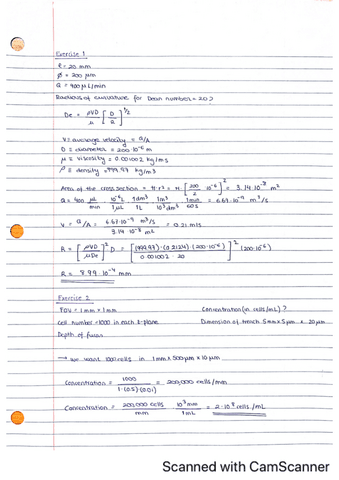 Exercise 1
ℓ = 20 mm
Ø = 200 μm
Q = 400 μL/min
Radius of curvature for Dean number = 20?
De = ρVD/μ [D/R]^1/2
V ≡ average velocity = Q/A
D ≡ diameter = 200·10^-6 m
μ ≡ viscosity = 0.001002 kg/ms
ρ ≡ density = 999.97 kg/m3
Area of the cross section = π·r² = π·[200/2 · 10^-6]² = 3.14·10^-8 m²
Q = 400 μL/min · 10^-6 L/1 μL · 1 dm³/1 L · 1 m³/10³ dm³ · 1 min/60 s = 6.67·10^-9 m³/s
V = Q/A = 6.67·10^-9 m³/s / 3.14·10^-8 m² = 0.21 m/s
R = [ρVD/μDe]² D = [(999.97)·(0.2124)·(200·10^-6)/0.001002·20]² (200·10^-6)
R = 8.99·10^-4 mm
Exercise 2
FOV = 1 mm x 1 mm Concentration (in cells/mL)?
Cell number = 1000 in each z-plane Dimension of trench 5mm x 5μm x 20μm
Depth of focus
→ we want 1000 cells in 1mm x 500μm x 10μm
Concentration = 1000/1·(0.5)(0.01) = 200,000 cells/mm
Concentration = 200,000 cells/mm · 10³ mm/1 mL = 2·10^8 cells/mL
Scanned with CamScanner